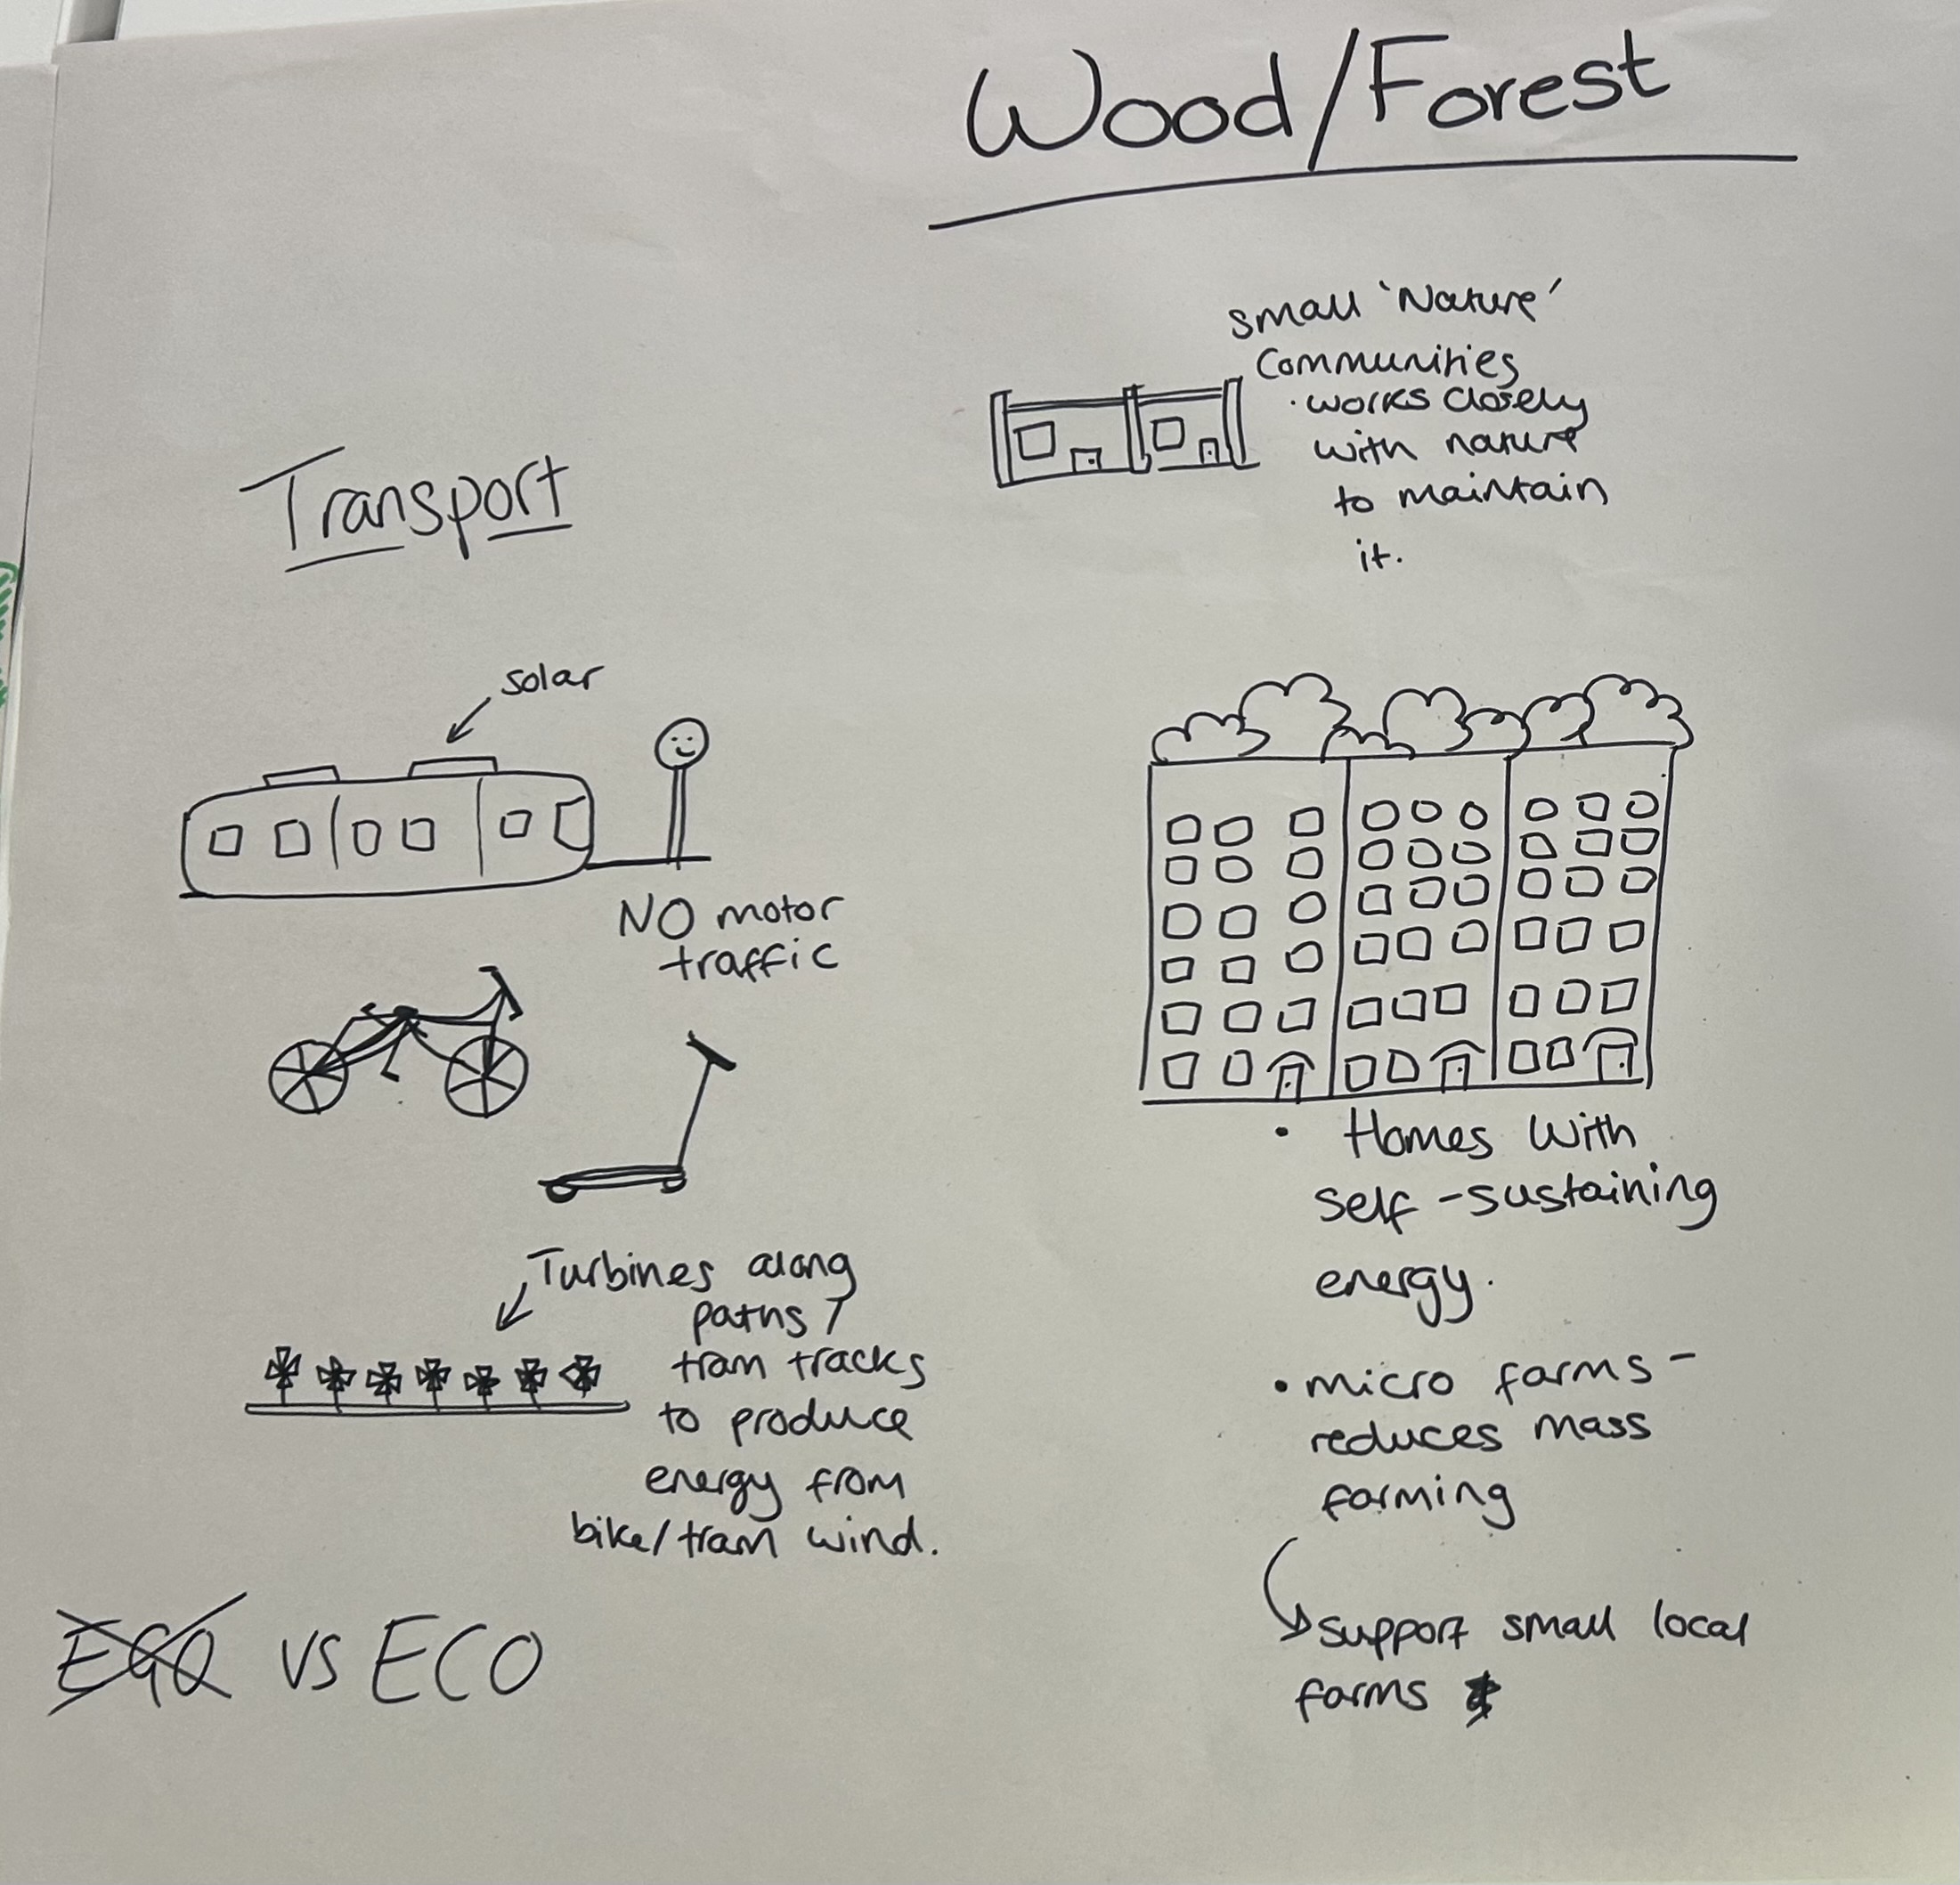 Wood/Forest
small 'Nature'
Communities
· works closely
with nature
to maintain
it.
Transport
solar
NO motor
traffic
Turbines along
paths /
tram tracks
to produce
energy from
bike/tram wind.
EGO VS ECO
• Homes With
self-sustaining
energy.
• micro farms -
reduces mass
farming
support small local
farms